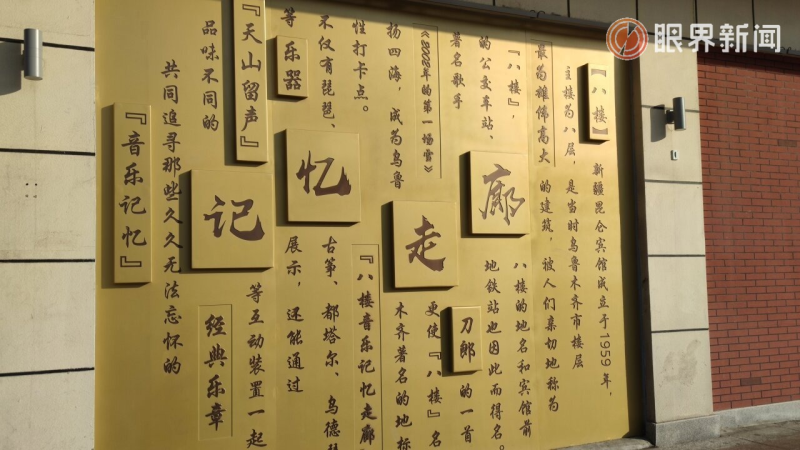 眼界新闻
『八楼』
新疆昆仑宾馆成立于1959年,
主楼为八层,是当时乌鲁木齐市楼层
最为雄伟高大的建筑,被人们亲切地称为
『八楼』,八楼的地名和宾馆前
的公交车站、地铁站也因此而得名。
著名歌手刀郎的一首
《2002年的第一场雪》更使『八楼』名
扬四海,成为乌鲁木齐著名的地标
性打卡点。『八楼音乐记忆走廊
不仅有琵琶、古筝、都塔尔、乌德
等乐器展示,还能通过
『天山留声』等互动装置一起
品味不同的经典乐章
共同追寻那些久久无法忘怀的
『音乐记忆』
记忆走廊